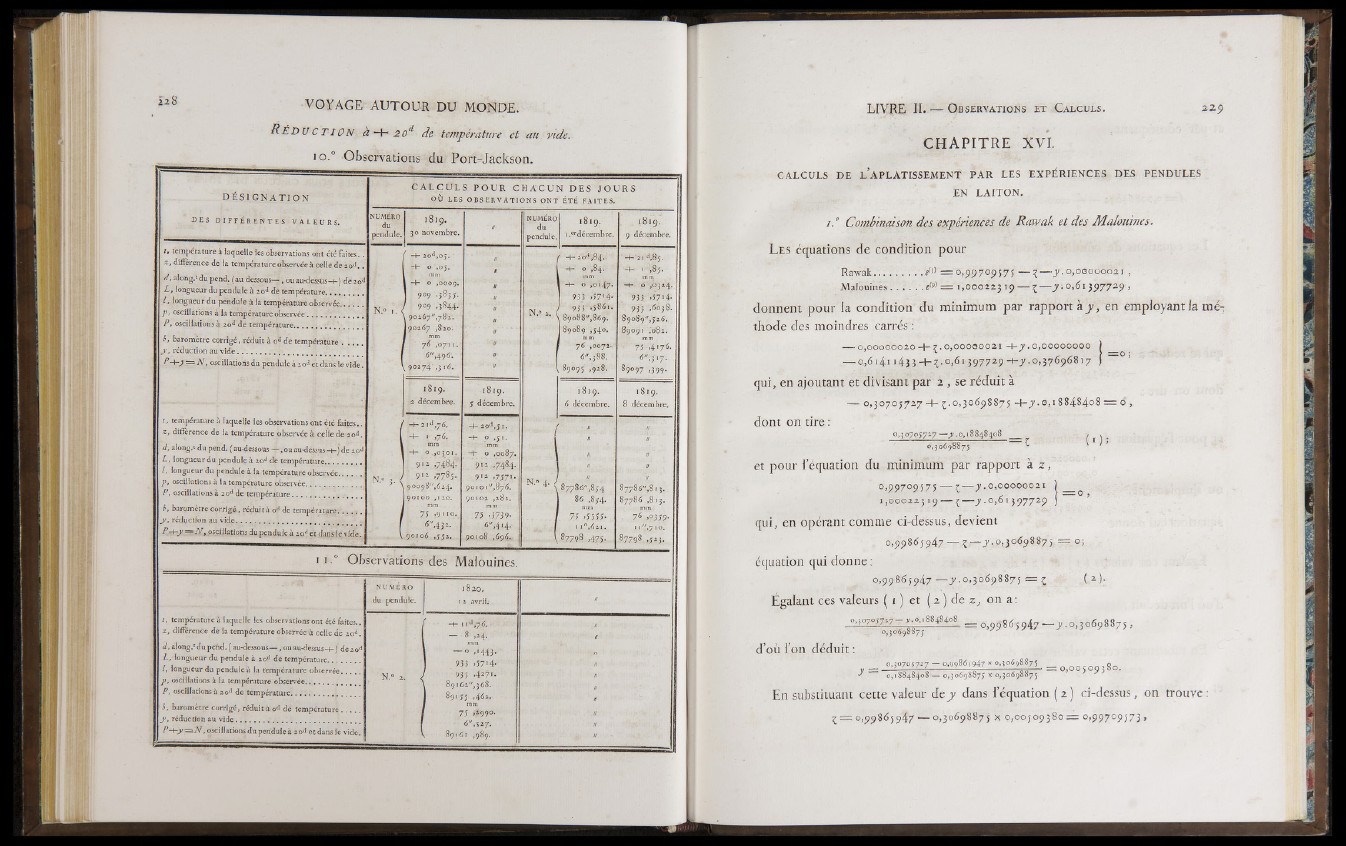 228 VOYAGE AUTOUR DU MONDE.
RÉDUCTION à + 20d de température et au vide.
10.° Observations du Port-Jackson.
DÉSIGNATION
DES DIFFÉRENTES VALEURS.
CALCULS POUR CHACUN DES JOURS
OÙ LES OBSERVATIONS ONT ÉTÉ FAITES.
NUMÉRO du pendule. | 1819. 30 novembre. | " | NUMÉRO du pendule. | 1819. 1.er décembre. | 1819. 9 décembre.
t, température à laquelle les observations ont été faites.. | N.° 1. | + 20d,05. | " | N.° 2. | + 20d,84. | + 21d,85.
z, différence de la température observée à celle de 20d. | + 0 ,05. | " | + 0 ,84. | + 1 ,85.
d, along.t du pend. (au-dessous —, ou au-dessus +) de 20d | + 0 ,0009. | " | + 0 ,0147. | + 0 ,0324.
L, longueur du pendule à 20d de température........ | 909 ,3835. | " | 933 ,5714. | 933 ,5714.
l, longueur du pendule à la température observée...... | 909 ,3844. | " | 933 ,5861. | 933 ,6038.
p, oscillations à la température observée............ | 90267",782. | " | 89088",869. | 89089",526.
P, oscillations à 20d de température............... | 90267 ,820. | " | 89089 ,540. | 89091 ,082.
b, baromètre corrigé, réduit à 0d de température..... | 76 ,0711. | " | 76 ,0072. | 75 ,4176.
y, réduction au vide........................... | 6",496. | " | 6",388. | 6",317.
P+y=N, oscillations du pendule à 20d et dans le vide. | 90274 ,316. | " | 89095 ,928. | 89097 ,399.
1819. 2 décembre. | 1819. 5 décembre. | 1819. 6 décembre. | 1819. 8 décembre.
t, température à laquelle les observations ont été faites.. | N.° 3. | + 21d,76. | + 20d,51. | N.° 4. | " | "
z, différence de la température observée à celle de 20d. | + 1 ,76. | + 0 ,51. | " | "
d, along.t du pend. (au-dessous —, ou au-dessus +) de 20d | + 0 ,0301. | + 0 ,0087. | " | "
L, longueur du pendule à 20d de température........ | 912 ,7484. | 912 ,7484. | " | "
l, longueur du pendule à la température observée...... | 912 ,7785. | 912 ,7571. | " | "
p, oscillations à la température observée............ | 90098",624. | 90101",876. | 87786",854. | 87786",813.
P, oscillations à 20d de température............... | 90100 ,120. | 90102 ,282. | 86 ,854. | 87786 ,813.
b, baromètre corrigé, réduit à 0d de température..... | 75 ,9110. | 75 ,1739. | 75 ,5555. | 76 ,0359.
y, réduction au vide........................... | 6",432. | 6",414. | 11",621. | 11",710.
P+y=N, oscillations du pendule à 20d et dans le vide. | 90106 ,552. | 90108 ,696. | 87798 ,475. | 87798 ,523.
11.° Observations des Malouines.
NUMÉRO du pendule. | 1820. 12 avril. | "
t, température à laquelle les observations ont été faites.. | N.° 2. | + 11d,76. | "
z, différence de la température observée à celle de 20d. | — 8 ,24. | "
d, along.t du pend. (au-dessous —, ou au-dessus +) de 20d | — 0 ,1443. | "
L, longueur du pendule à 20d de température........ | 933 ,5714. | "
l, longueur du pendule à la température observée...... | 933 ,4271. | "
p, oscillations à la température observée............ | 89162",368. | "
P, oscillations à 20d de température............... | 89155 ,462. | "
b, baromètre corrigé, réduit à 0d de température..... | 75 ,8990. | "
y, réduction au vide........................... | 6",527. | "
P+y=N, oscillations du pendule à 20d et dans le vide. | 89161 ,989. | "
LIVRE II. — OBSERVATIONS ET CALCULS. 229
CHAPITRE XVI.
CALCULS DE L'APLATISSEMENT PAR LES EXPÉRIENCES DES PENDULES
EN LAITON.
1.° Combinaison des expériences de Rawak et des Malouines.
LES équations de condition pour
Rawak.........e(1) = 0,99709575 — z — y.0,00000021 ,
Malouines......e(2) = 1,00022319 — z — y.0,61397729 ,
donnent pour la condition du minimum par rapport à y, en employant la mé-
thode des moindres carrés :
— 0,00000020 + z.0,00000021 + y.0,00000000 } = 0 ;
— 0,61411433 + z.0,61397729 + y.0,37696817
qui, en ajoutant et divisant par 2 , se réduit à
— 0,30705727 + z.0,30698875 + y.0,18848408 = 0 ,
dont on tire :
0,30705727 — y.0,18848408 / 0,30698875 = z ( 1 ) ;
et pour l'équation du minimum par rapport à z ,
0,99709575 — z — y.0,00000021 } = 0 ,
1,00022319 — z — y.0,61397729
qui, en opérant comme ci-dessus, devient
0,99865947 — z — y.0,30698875 = 0 ;
équation qui donne :
0,99865947 — y.0,30698875 = z ( 2 ).
Égalant ces valeurs ( 1 ) et ( 2 ) de z, on a :
0,30705727 — y.0,18848408 / 0,30698875 = 0,99865947 — y.0,30698875 ,
d'où l'on déduit :
y = 0,30705727 — 0,99865947 × 0,30698875 / 0,18848408 — 0,30698875 × 0,30698875 = 0,00509380.
En substituant cette valeur de y dans l'équation ( 2 ) ci-dessus , on trouve :
z = 0,99865947 — 0,30698875 × 0,00509380 = 0,99709573 ,